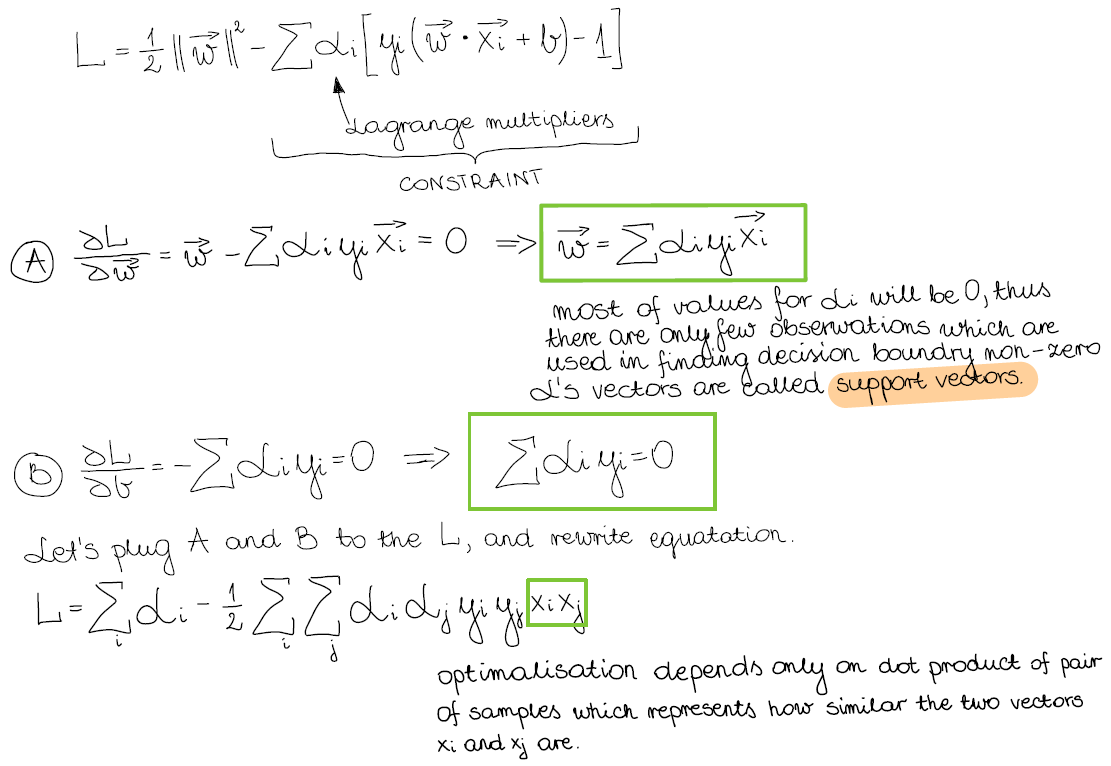 L = ½ ‖w⃗‖² - ∑ αi [yi (w⃗ · x⃗i + b) - 1]
Lagrange multipliers
CONSTRAINT
A ∂L/∂w⃗ = w⃗ - ∑ αi yi x⃗i = 0 ⇒ w⃗ = ∑ αi yi x⃗i
most of values for αi will be 0, thus
there are only few observations which are
used in finding decision boundry non-zero
α's vectors are called support vectors.
B ∂L/∂b = - ∑ αi yi = 0 ⇒ ∑ αi yi = 0
Let's plug A and B to the L, and rewrite equatation.
L = ∑i αi - ½ ∑i ∑j αi αj yi yj xi xj
optimalisation depends only on dot product of pair
of samples which represents how similar the two vectors
xi and xj are.